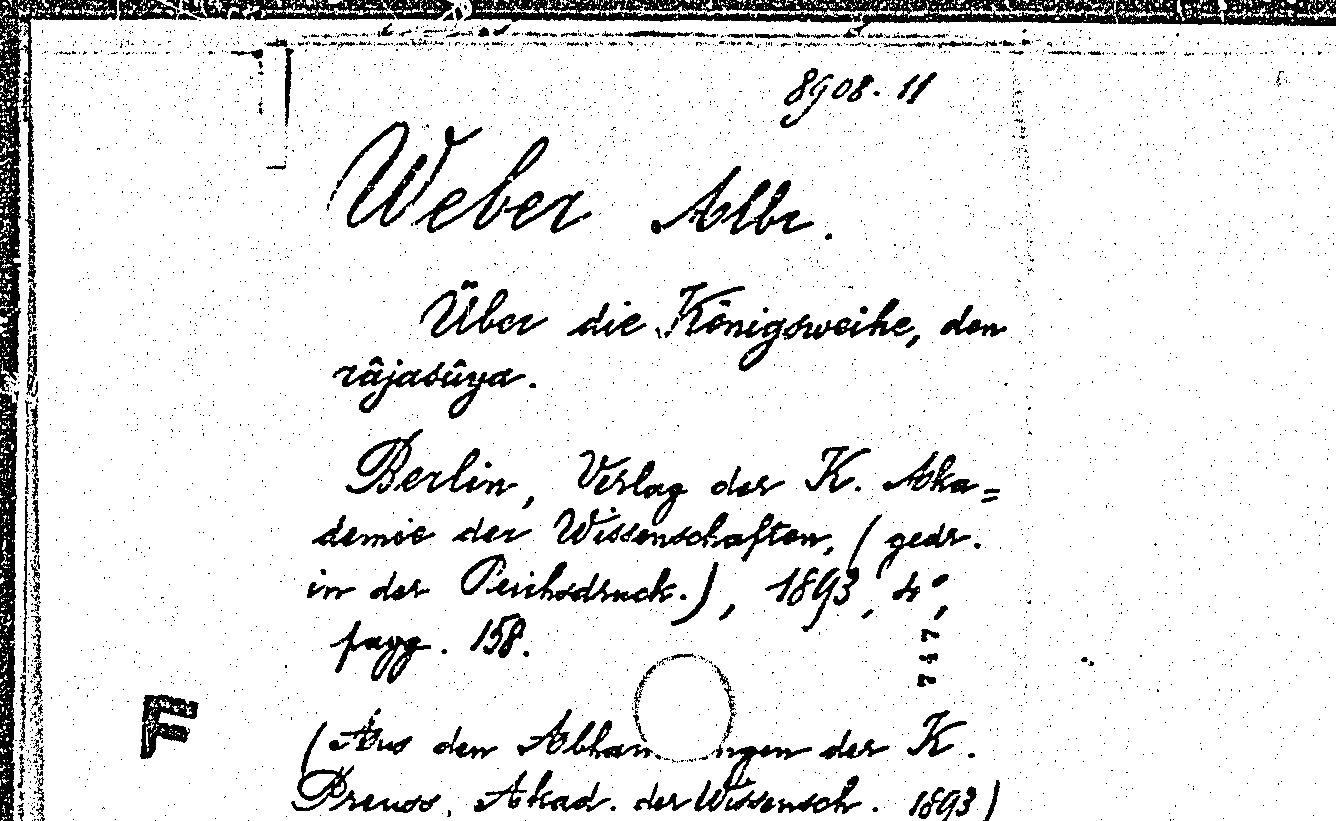 8908. 11
Weber Albr.
Über die Königsweihe, den
râjasûya.
Berlin, Verlag der K. Aka=
demie der Wissenschaften, (gedr.
in der Reichsdruck.), 1893, 4°,
pagg. 158.
747
F
(Aus den Abhan ngen der K.
Preuss. Akad. der Wissensch. 1893)